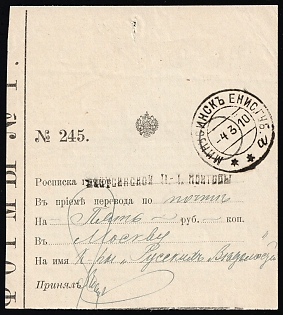 ФОРМЫ № 1.
МИНУСИНСКЪ ЕНИС. ГУБ.
-4 3 10
а
№ 245.
Росписка
МИНУСИНСКОЙ П.-Т. КОНТОРЫ
Въ пріемѣ перевода по почтѣ
На Пять руб. — коп.
Въ Москву
На имя к-ры „Русскихъ Вѣдомостей"
Принялъ